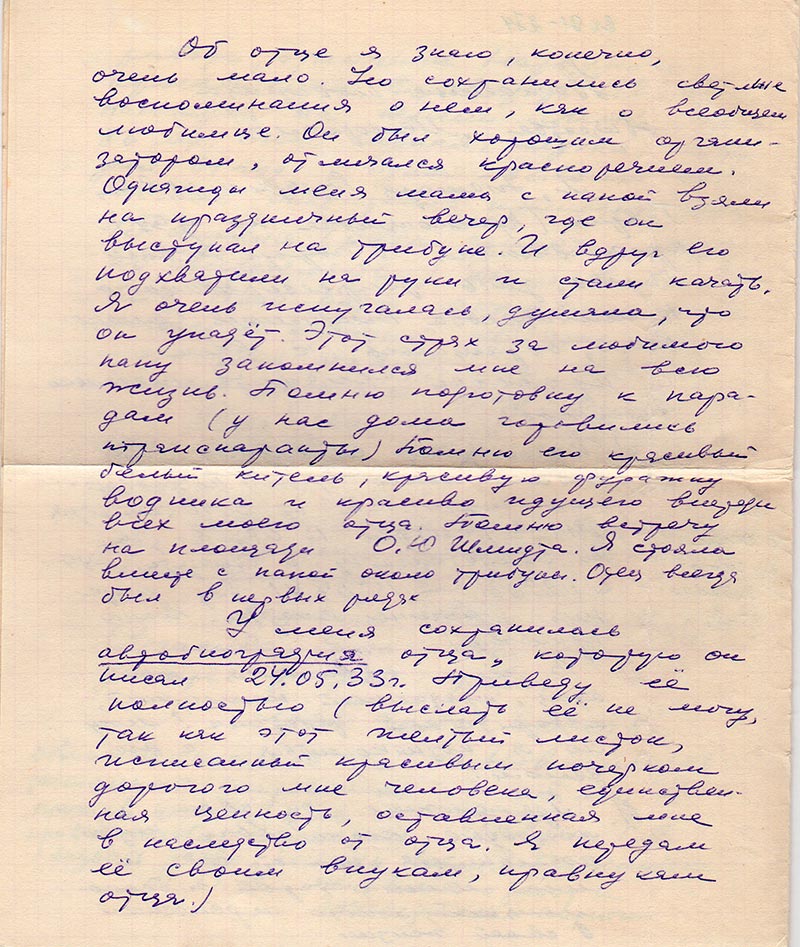 Об отце я знаю, конечно,
очень мало. Но сохранились светлые
воспоминания о нем, как о всеобщем
любимце. Он был хорошим органи-
затором, отличался красноречием.
Однажды меня мама с папой взяли
на праздничный вечер, где он
выступал на трибуне. И вдруг его
подхватили на руки и стали качать.
Я очень испугалась, думала, что
он упадёт. Этот страх за любимого
папу запомнился мне на всю
жизнь. Помню подготовку к пара-
дам (у нас дома готовились
транспаранты) Помню его красивый
белый китель, красивую фуражку
водника и красиво идущего впереди
всех моего отца. Помню встречу
на площади О.Ю Шмидта. Я стояла
вместе с папой около трибуны. Отец всегда
был в первых рядах
У меня сохранилась
автобиография отца, которую он
писал 24.05.33г. Приведу её
полностью (выслать её не могу,
так как этот желтый листок,
исписанный красивым почерком
дорогого мне человека, единствен-
ная ценность, оставленная мне
в наследство от отца. Я передам
её своим внукам, правнукам
отца.)